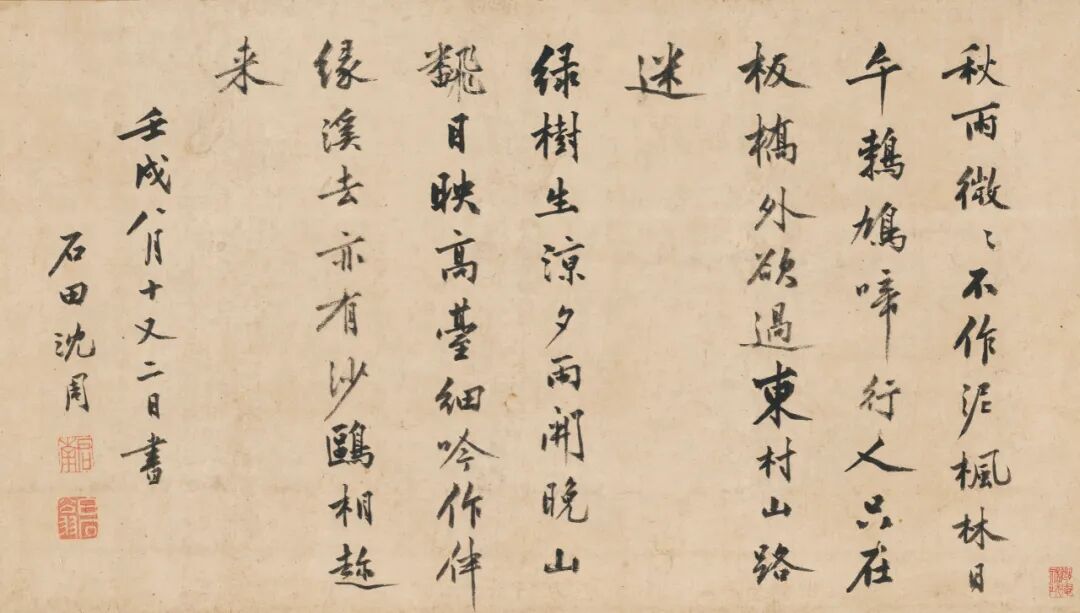 秋雨微〻不作泥楓林日
午鵓鳩啼行人只在
板橋外欲過東村山路
迷
綠樹生涼夕雨開晚山
飜日映高臺細吟作伴
緣溪去亦有沙鷗相趂
来
壬戌八月十又二日書
石田沈周
啓南
白石翁